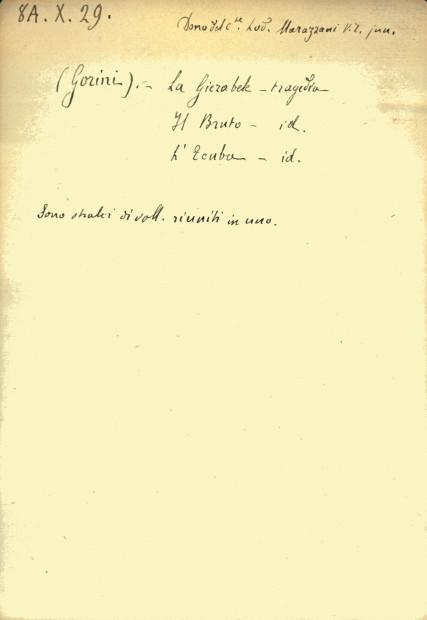 8A. X. 29.
Dono del C.te Lod. Marazzani V. T. jun.
(Gorini).- La Giezabele - tragedia
Il Bruto - id.
L'Ecuba - id.
Sono stralci di voll. riuniti in uno.